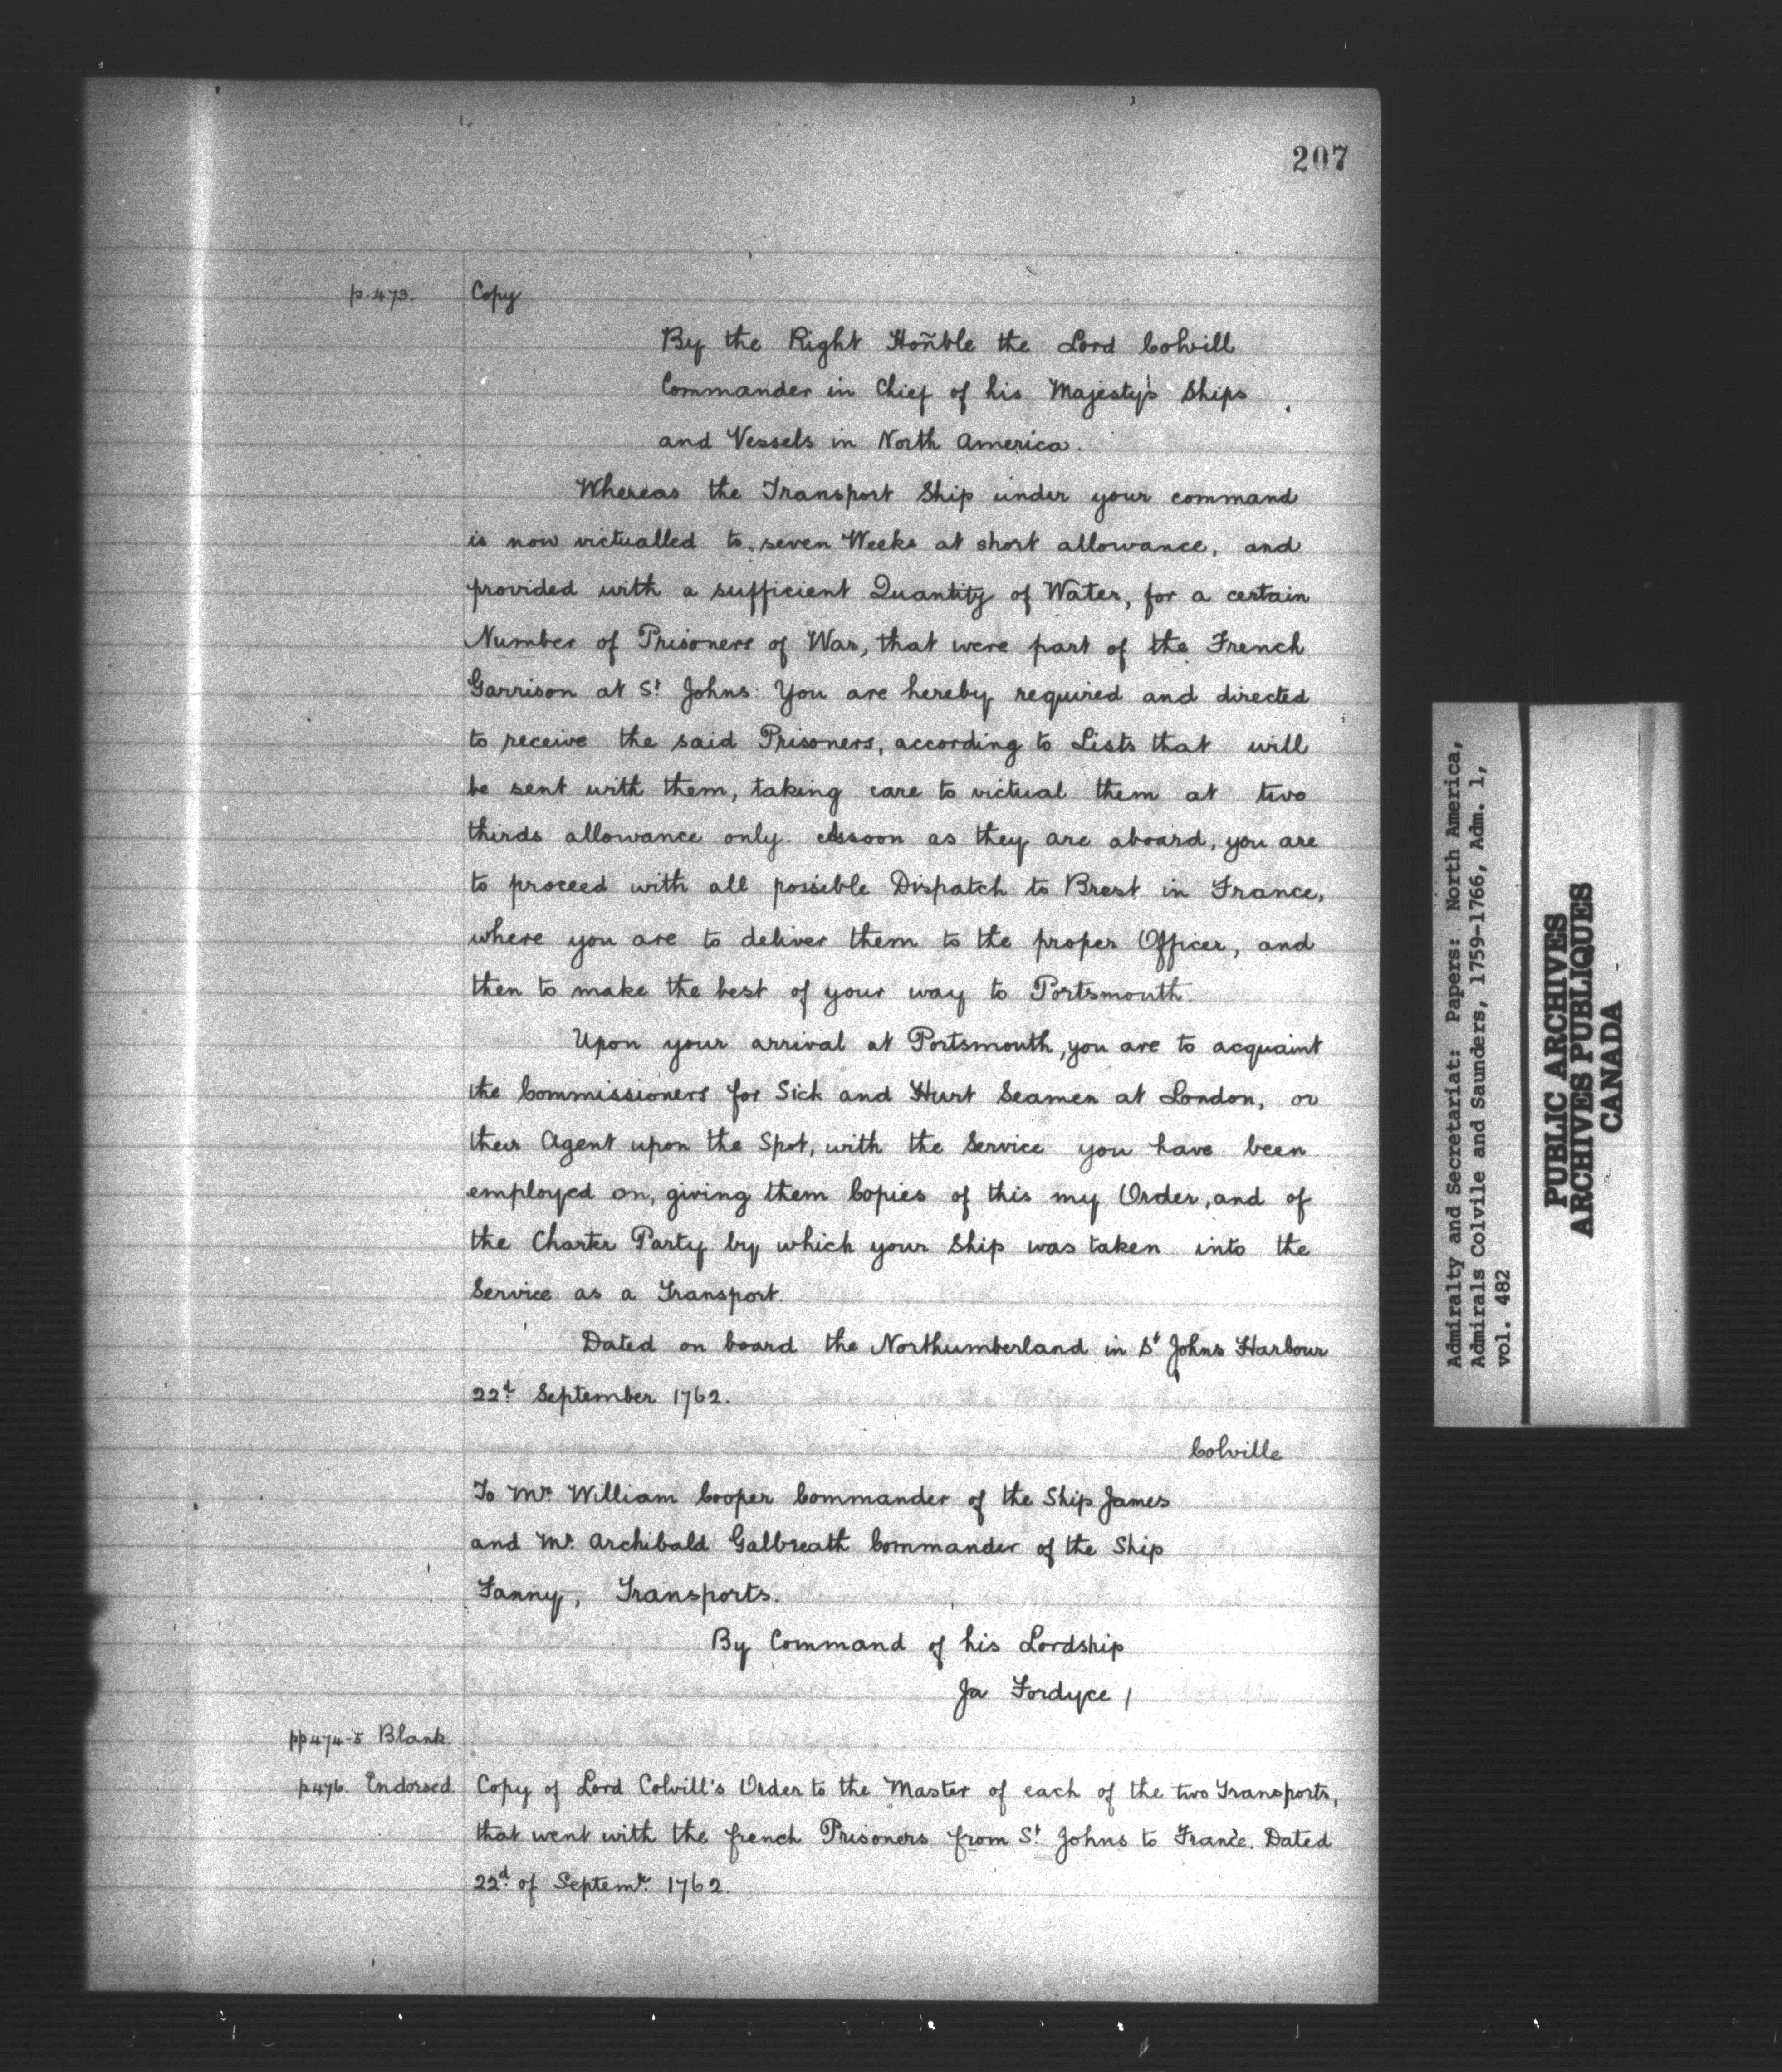 207
p. 473. Copy
By the Right Hoñble the Lord Colvill
Commander in Chief of his Majesty's Ships
and Vessels in North America.
Whereas the Transport Ship under your command
is now victualled to seven Weeks at short allowance, and
provided with a sufficient Quantity of Water, for a certain
Number of Prisoners of War, that were part of the French
Garrison at St Johns: You are hereby required and directed
to receive the said Prisoners, according to Lists that will
be sent with them, taking care to victual them at two
thirds allowance only. Assoon as they are aboard, you are
to proceed with all possible Dispatch to Brest in France,
where you are to deliver them to the proper Officer, and
then to make the best of your way to Portsmouth.
Upon your arrival at Portsmouth, you are to acquaint
the Commissioners for Sick and Hurt Seamen at London, or
their Agent upon the Spot, with the Service you have been
employed on, giving them Copies of this my Order, and of
the Charter Party by which your Ship was taken into the
Service as a Transport.
Dated on board the Northumberland in St Johns Harbour
22d September 1762.
Colville
To Mr William Cooper Commander of the Ship James
and Mr Archibald Galbreath Commander of the Ship
Fanny, Transports.
By Command of his Lordship
Ja Fordyce /
pp 474-5 Blank.
p476. Endorsed Copy of Lord Colvill's Order to the Master of each of the two Transports,
that went with the french Prisoners from St Johns to France. Dated
22d of Septemr 1762.
Admiralty and Secretariat: Papers: North America,
Admirals Colvile and Saunders, 1759-1766, Adm. 1,
vol. 482
PUBLIC ARCHIVES
ARCHIVES PUBLIQUES
CANADA